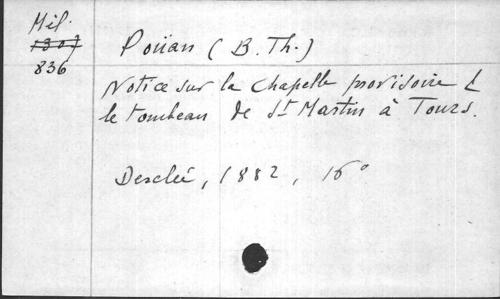 Mil.
1303
836
Poüan (B. Th.)
Notice sur la Chapelle provisoire &
le tombeau de St Martin à Tours.
Desclée, 1882, 16°